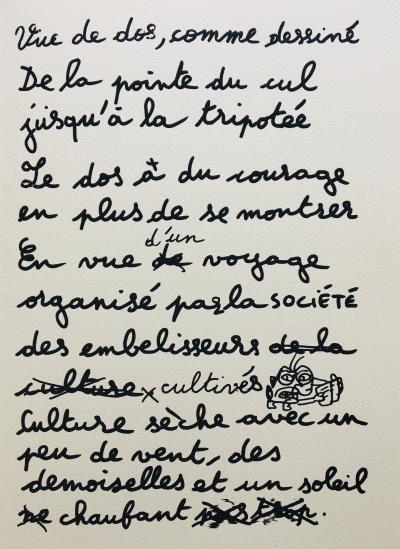 Vue de dos, comme dessiné
De la pointe du cul
jusqu'à la tripotée
Le dos à du courage
en plus de se montrer
d'un
En vue de voyage
organisé par la SOCIÉTÉ
des embelisseurs de la
culture x cultivés
Culture sèche avec un
peu de vent, des
demoiselles et un soleil
ne chaufant pas trop.